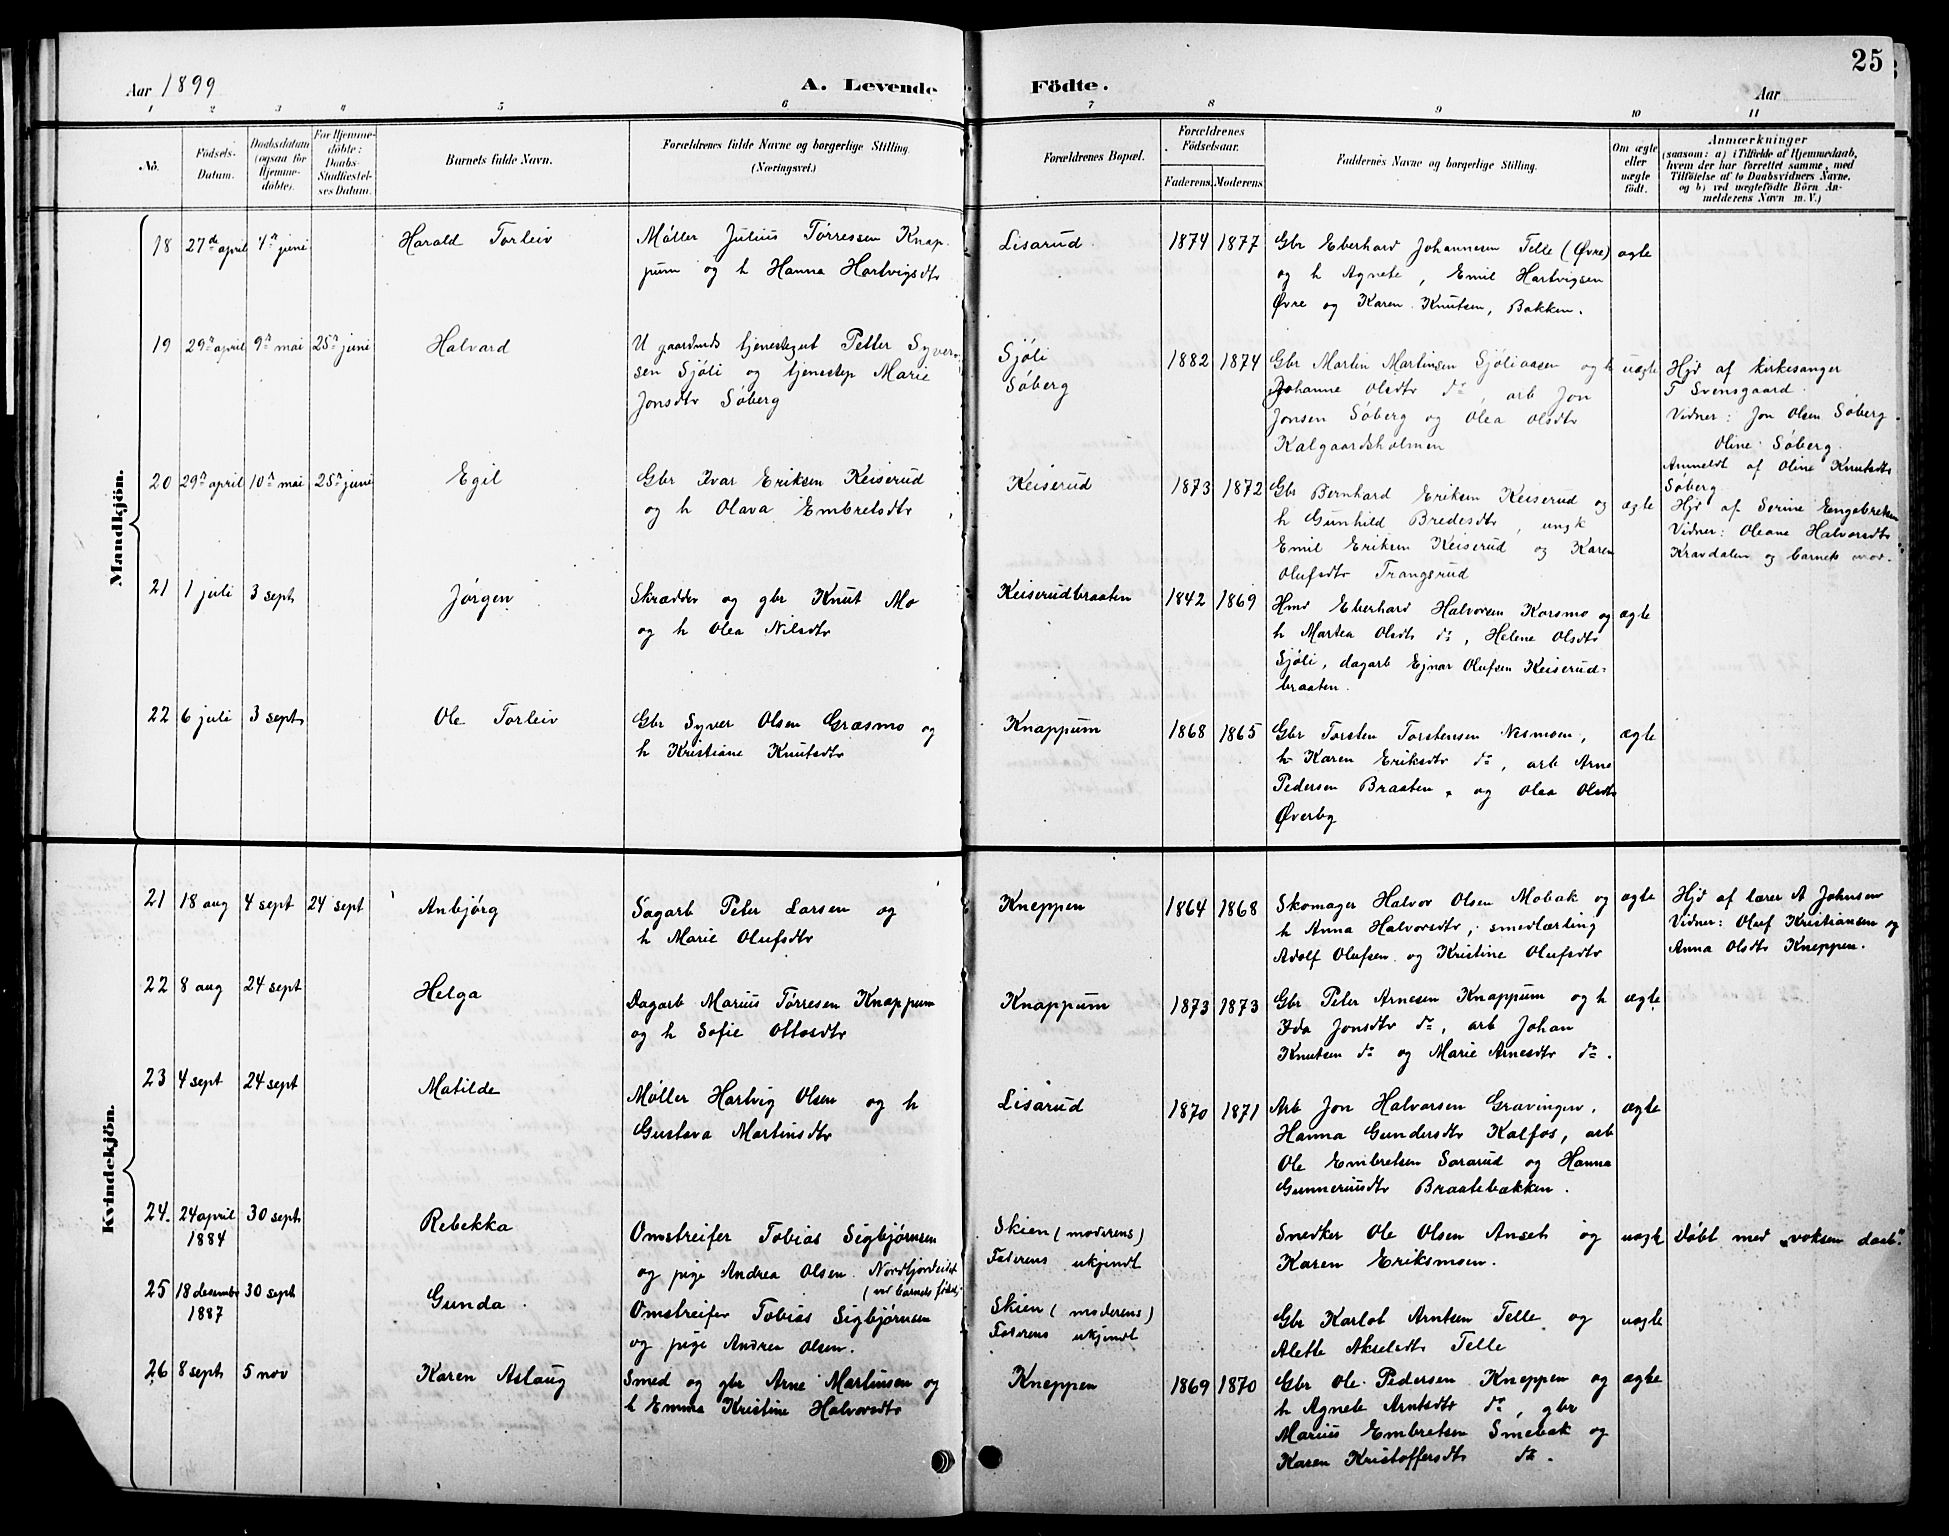 25
Aar 1899
A. Levende Födte.
Aar
1 2 3 4 5 6 7 8 9 10 11
No.
Födsels-Datum.
Daabsdatum (ogsaa for Hjemme-döbte).
For Hjemme-döbte: Daabs-Stadfæstel-ses Datum.
Barnets fulde Navn.
Forældrenes fulde Navne og borgerlige Stilling (Næringsvei.)
Forældrenes Bopæl.
Forældrenes Födselsaar.
Faderens. Moderens.
Faddernes Navne og borgerlige Stilling.
Om ægte eller uægte födt.
Anmærkninger
(saasom: a) i Tilfælde af Hjemmedaab,
hvem der har forrettet samme, med
Tilföielse af to Daabsvidners Navne,
og b) ved uægtefödte Börn An-
melderens Navn m. V.)
Mandkjön.
18 27de april 4de juni
Harald Torleiv
Møller Julius Tørressen Knap-
pum og h Hanna Hartvigsdtr
Lisarud
1874 1877
Gbr Eberhard Johannesen Telle (Øvre)
og h Agnete, Emil Hartvigsen
Øvre og Karen Knutsen, Bakken.
ægte
19 29de april 9de mai 25de juni
Halvard
U gaardmds tjenestegut Petter Syver-
sen Sjøli og tjenestep Marie
Jonsdtr Søberg
Sjøli
Søberg
1882 1874
Gbr Martin Martinsen Sjøliaasen og h
Johanne Olsdtr do, arb Jon
Jonsen Søberg og Olea Olsdtr
Kalgaardsholmen
uægte
Hjd af kirkesanger
T Svensgaard.
Vidner: Jon Olsen Søberg.
Oline Søberg.
Anmeldt af Oline Knutsdtr
Søberg
20 29de april 10de mai 25de juni
Egil
Gbr Ivar Eriksen Keiserud
og h Olava Embretsdtr
Keiserud
1873 1872
Gbr Bernhard Eriksen Keiserud og
h Gunhild Bredesdtr, ungk
Emil Eriksen Keiserud og Karen
Olufsdtr Trangsrud
ægte
Hjd af Serine Engebretsen
Vidner: Oleane Halvorsdtr
Kravdalen og barnets mor.
21 1 juli 3 sept
Jørgen
Skrædder og gbr Knut Mo
og h Olea Nilsdtr
Keiserudbraaten
1842 1869
Hmd Eberhard Halvorsen Korsmo og
h Martea Olsdtr do, Helene Olsdtr
Sjøli, dagarb Ejnar Olufsen Keiserud-
braaten.
ægte
22 6 juli 3 sept
Ole Torleiv
Gbr Syver Olsen Græsmo og
h Kristiane Knutsdtr
Knappum
1868 1865
Gbr Torsten Torstensen Nesmoen,
h Karen Eriksdtr do, arb Arne
Pedersen Braaten, og Olea Olsdtr
Øverby
ægte
Kvindekjön.
21 18 aug 4 sept 24 sept
Anbjørg
Sagarb Peter Larsen og
h Marie Olufsdtr
Kneppen
1864 1868
Skomager Halvor Olsen Mobak og
h Anna Halvorsdtr, smedlærling
Adolf Olufsen og Kristine Olufsdtr
ægte
Hjd af lærer A Johnsen
Vidner: Oluf Kristiansen og
Anna Olsdtr Kneppen.
22 8 aug 24 sept
Helga
Dagarb Marius Tørresen Knappum
og h Sofie Ottosdtr
Knappum
1873 1873
Gbr Peter Arnesen Knappum og h
Ida Jonsdtr do, arb Johan
Knutsen do og Marie Arnesdtr do.
ægte
23 4 sept 24 sept
Matilde
Møller Hartvig Olsen og h
Gustava Martinsdtr
Lisarud
1870 1871
Arb Jon Halvorsen Gravingen,
Hanna Gundersdtr Kalfos, arb
Ole Embretsen Sorarud og Hanna
Gunneriusdtr Braatebækken.
ægte
24. 24 april 1884 30 sept
Rebekka
Omstreifer Tobias Sigbjørnsen
og pige Andrea Olsen. Nordfjordeidet
(ved barnets fødsel)
Skien (moderens)
Faderens ukjendt
Snedker Ole Olsen Anset og
Karen Eriksmoen.
uægte
Døbt med "voksen daab".
25 18 desember 1887 30 sept
Gunda
Omstreifer Tobias Sigbjørnsen
og pige Andrea Olsen.
Skien (moderens)
Faderens ukjendt
Gbr Karlot Arntsen Telle og
Alette Akseldtr Telle
uægte
26 8 sept 5 nov
Karen Aslaug
Smed og gbr Arne Martinsen og
h Emma Kristine Halvorsdtr
Kneppen
1869 1870
Gbr Ole Pedersen Kneppen og
h Agnete Arntsdtr do, gbr
Marius Embretsen Smebak og
Karen Kristoffersdtr do.
ægte